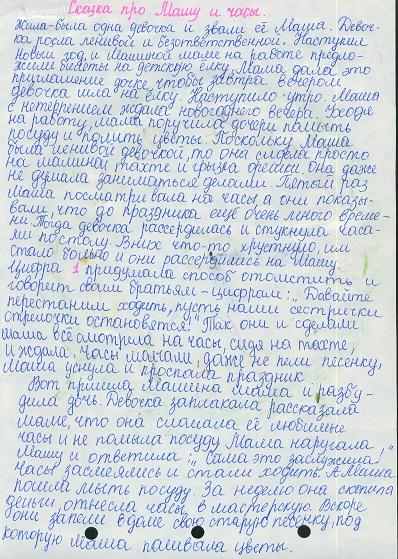 Сказка про Машу и часы.
Жила-была одна девочка и звали её Маша. Девоч-
ка росла ленивой и безответственной. Наступил
новый год, и Машиной маме на работе предло-
жили билеты на детскую ёлку. Мама дала это
приглашение дочке, чтобы завтра вечером
девочка шла на ёлку. Наступило утро. Маша
с нетерпением ждала новогоднего вечера. Уходя
на работу, мама поручила дочери помыть
посуду и полить цветы. Поскольку Маша
была ленивой девочкой, то она сидела просто
на маминой тахте и грызла орешки. Она даже
не думала заниматься делами. Пятый раз
Маша посматривала на часы, а они показы-
вали, что до праздника ещё очень много време-
ни. Тогда девочка рассердилась и стукнула часа-
ми по столу. В них что-то хрустнуло, им
стало больно и они рассердились на Машу.
Цифра 1 придумала способ отомстить и
говорит своим братьям-цифрам: „Давайте
перестанем ходить, пусть наши сестрички
стрелочки остановятся. Так они и сделали
Маша всё смотрела на часы, сидя на тахте,
и ждала, часы молчали, даже не пели песенку,
Маша уснула и проспала праздник.
Вот пришла Машина мама и разбу-
дила дочь. Девочка заплакала рассказала
маме, что она сломала её любимые
часы и не помыла посуду. Мама наругала
Машу и ответила: „Сама это заслужила!"
Часы засмеялись и стали ходить. А Маша
пошла мыть посуду. За неделю она скопила
деньги, отнесла часы в мастерскую. Вскоре
они запели в доме свою старую песенку, под
которую Маша поливала цветы.